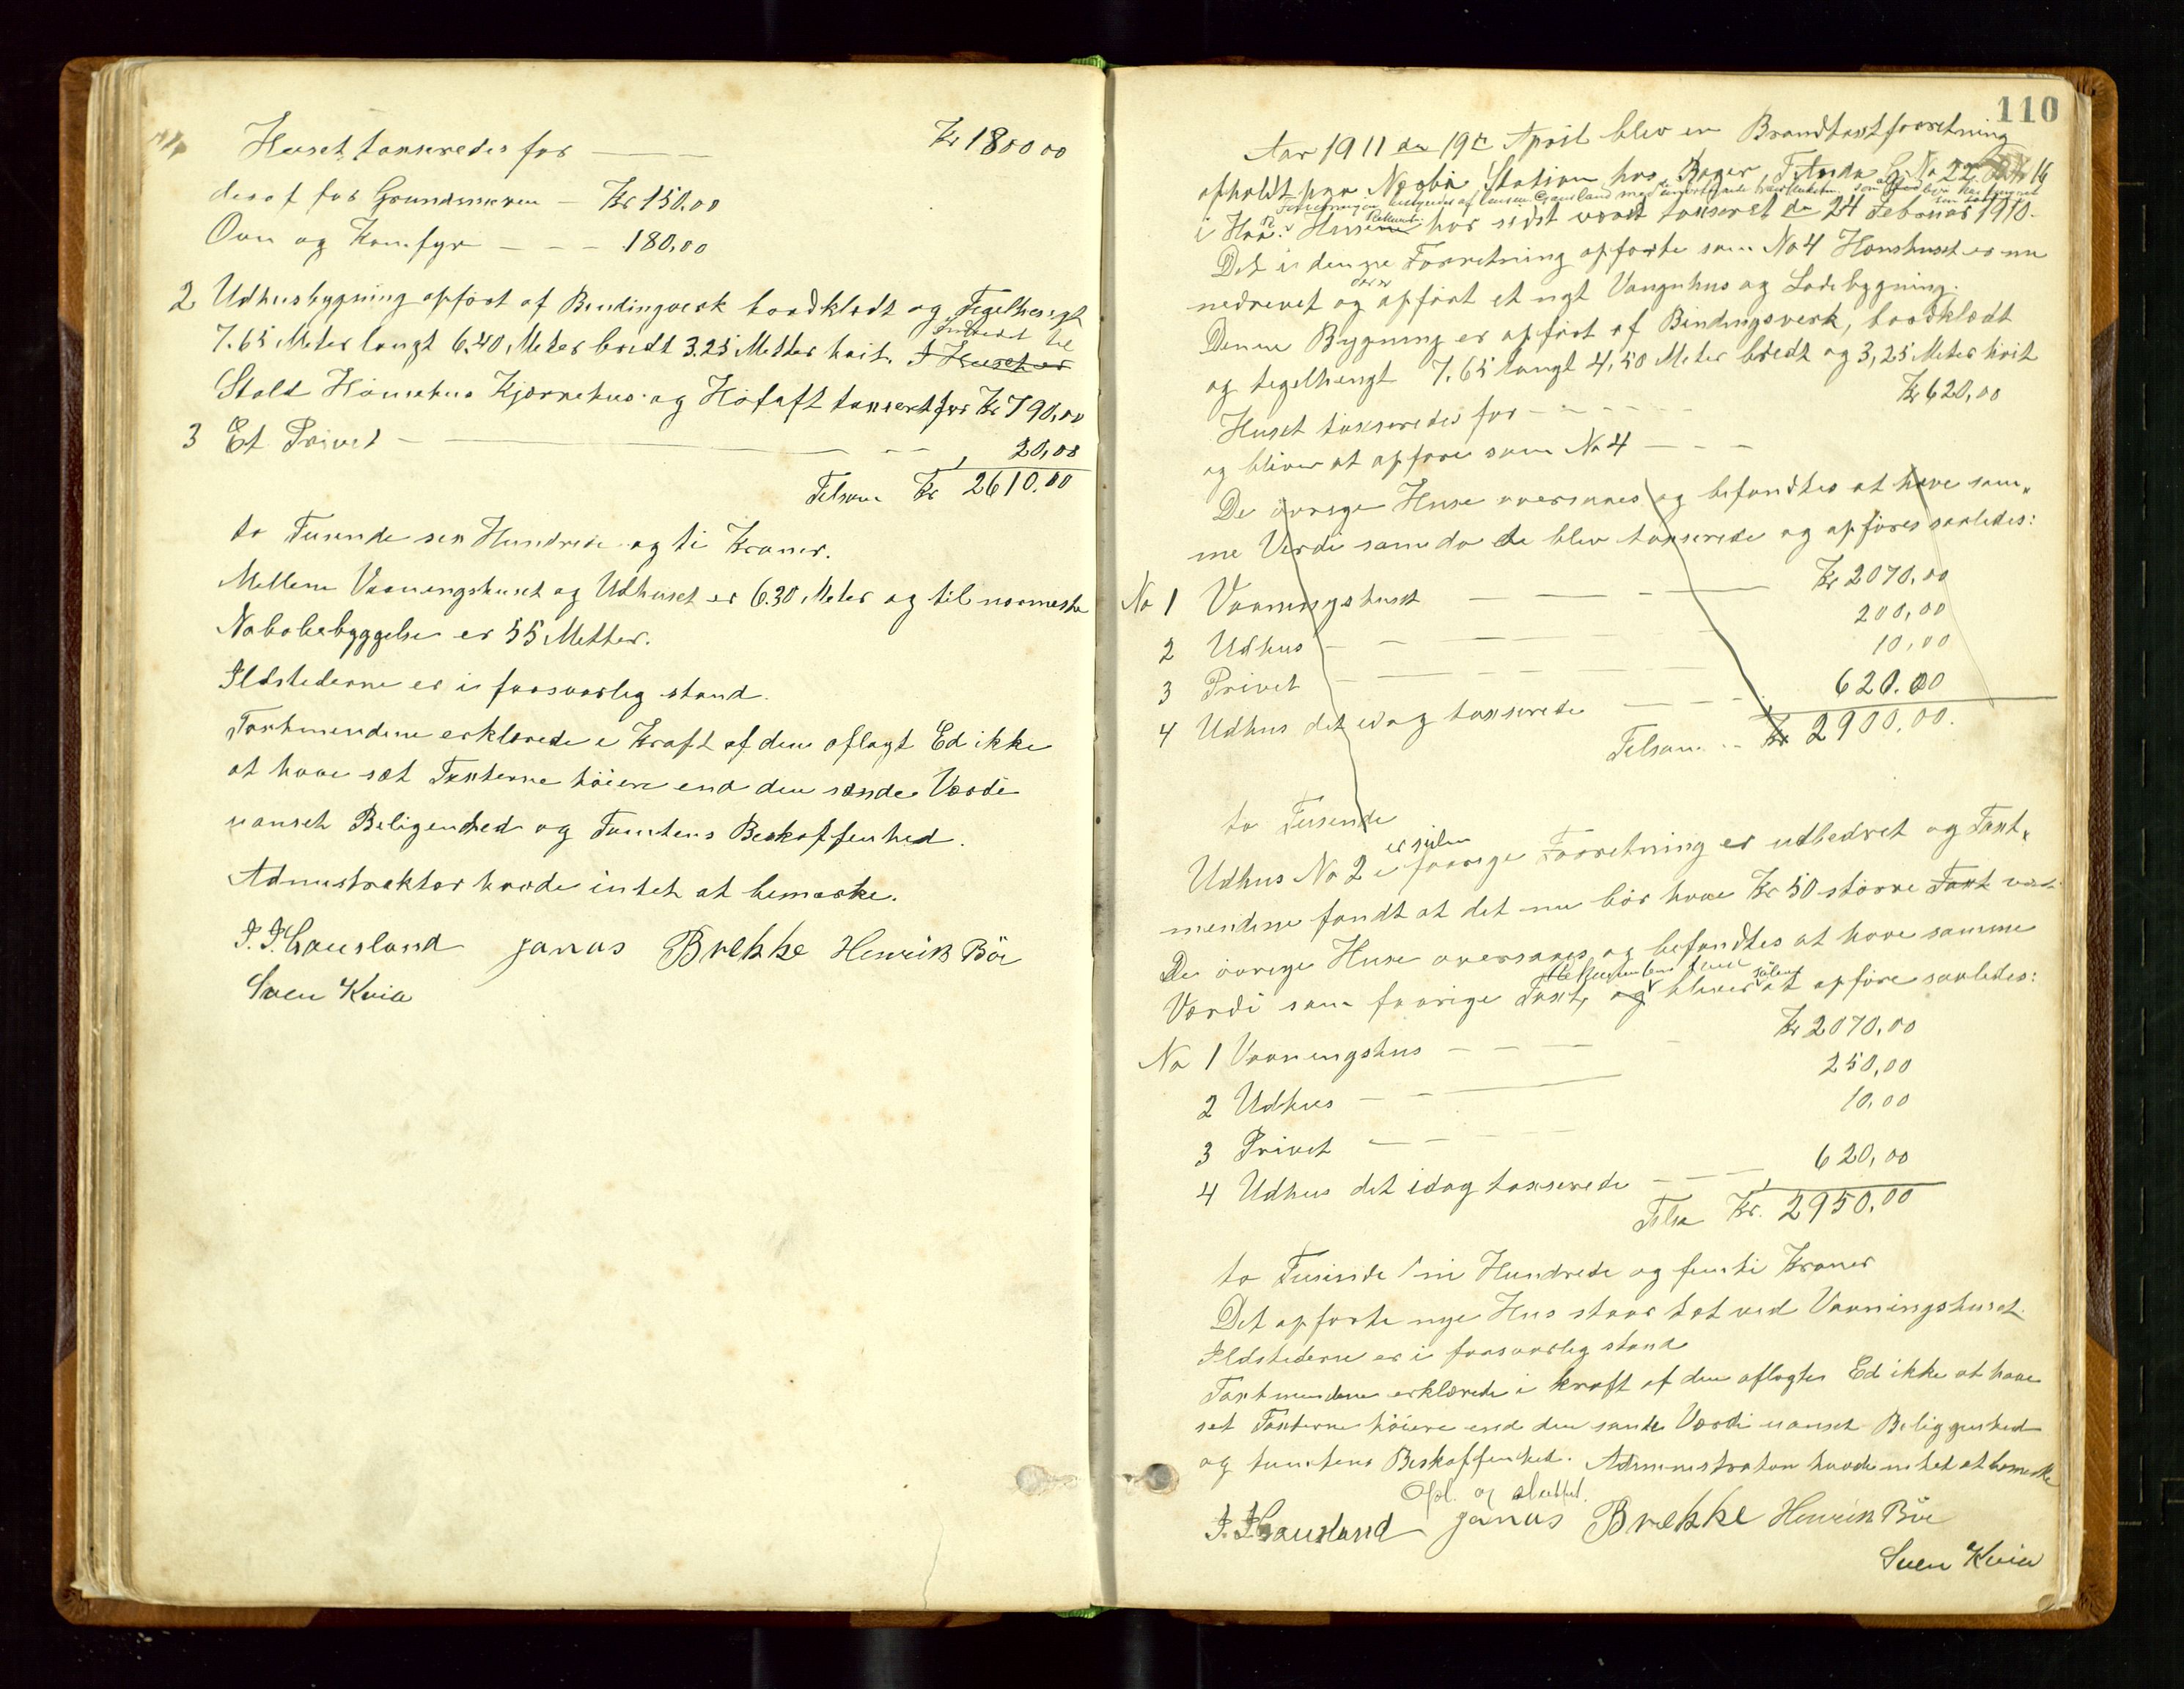 Huset taxseredes for — — Kr 1800 00
deraf for Grundmuren — Kr 150.00
Ovn og Komfyr — — — 180,00
2 Udhusbygning opført af Bindingverk bordklædt og Tegelhengt
7.65 Meter langt 6.40 Meter bredt 3.25 Metter høit. Huset er
indredt til
Stald Hönsehus Kjørrehus og Høloft taxsert for Kr 790,00
3 Et Privet — — — 20,00
Tilsam Kr 2610.00
to Tusinde sex Hundrede og ti Kroner.
Mellem Vaaningshuset og Udhuset er 6.30 Meter og til nærmeste
Nabobebyggelse er 55 Metter.
Ildstederne er i forsvarlig stand.
Taxtmendene erklærede i Kraft af den aflagt Ed ikke
at have sat Taxterne høiere end den sande Værdi
uanset Beligenhed og Tomtens Beskaffenhed.
Admistraktor havde intet at bemærke.
J. J. Gausland Janas Brekke Henrik Böe
Sven Kvia
110
Aar 1911 den 19de April blev en Brandtaxtforretning
opholdt paa Nærbø Station hos Bager G. No 22 16
Forretningen
i Haa. har sidst været taxseret den 24 Februar 1910.
Det i denne Forretning opførte som No 4 Hønshuset er nu
nedrevet og opført et nyt Vognhus og Ladebygning.
derer
Denne Bygning er opført af Bindingsverk, bordklædt
og tegelhengt 7.65 langt 4,50 Meter bredt og 3,25 Meter høit
Huset taxseredes for — — — — Kr 620,00
og bliver at opføre som No 4 — — —
De øvrige Huse oversaaes og befandtes at have sam-
me Verdi som da de blev taxserede og opføres saaledes:
No 1 Vaaningshuset — — — Kr 2070,00
2 Udhus — — — 200,00
3 Privet — — — 10,00
4 Udhus det idag taxserede — — — 620.00
Tilsam — Kr 2900,00.
to Tusende
er siden
Udhus No 2 i forrige Forretning er udbedret og Taxt-
mendene fandt at det nu bör have Kr 50 større Taxt verdi
De øvrige Huse oversaaes og befandtes at have samme
Værdi som forrige Taxt, og bliver at opføre saaledes:
No 1 Vaaningshus — — — Kr 2070,00
2 Udhus — — — 250,00
3 Privet — — — 10,00
4 Udhus det idag taxserede — — — 620,00
Tilsa Kr. 2950,00
to Tusinde ni Hundrede og femti Kroner
Det opførte nye Hus staar tæt ved Vaaningshuset.
Ildstederne er i forsvarlig stand
Taxtmendene erklærede i kraft af den aflagte Ed ikke at have
sat Taxterne høiere end den sande Værdi uanset Beliggenhed
og tomtens Beskaffenhed. Administrator havde intet at bemærke
Opl. og sluttet.
J. J. Gausland Janas Brekke Henrik Böe
Sven Kvia